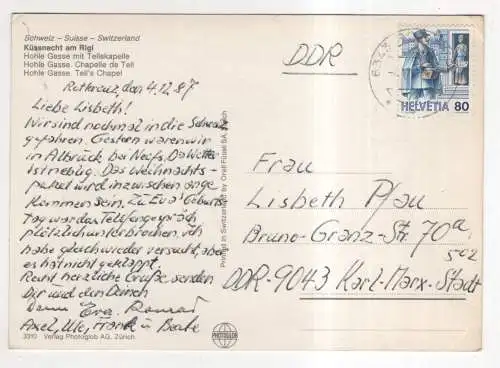 Schweiz – Suisse – Switzerland
Küssnacht am Rigi
Hohle Gasse mit Tellskapelle
Hohle Gasse. Chapelle de Tell
Hohle Gasse. Tell's Chapel
Rotkreuz, den 4.12.87
Liebe Lisbeth!
Wir sind nochmal in die Schweiz
gefahren. Gestern waren wir
in Albbruck bei Neefs. Da Wetter
ist neblig. Das Weihnachts-
paket wird inzwischen ange
kommen sein. Zu Eva's Geburts
Tag war das Telefongespräch
plötzlich unterbrochen, ich
habe gleich wieder versucht, aber
es hat nicht geklappt.
Recht herzliche Grüße senden
Dir und den
Eva, Konrad
Axel, Ute, Frank u Beate
3310 Verlag Photoglob AG, Zürich
Printed in Switzerland by Orell Füssli SA Zürich
PHOTOGLOB
DDR
6343
HELVETIA 80
Frau
Lisbeth Pfau
Bruno-Granz-Str. 70a
502
DDR-9043 Karl-Marx-Stadt